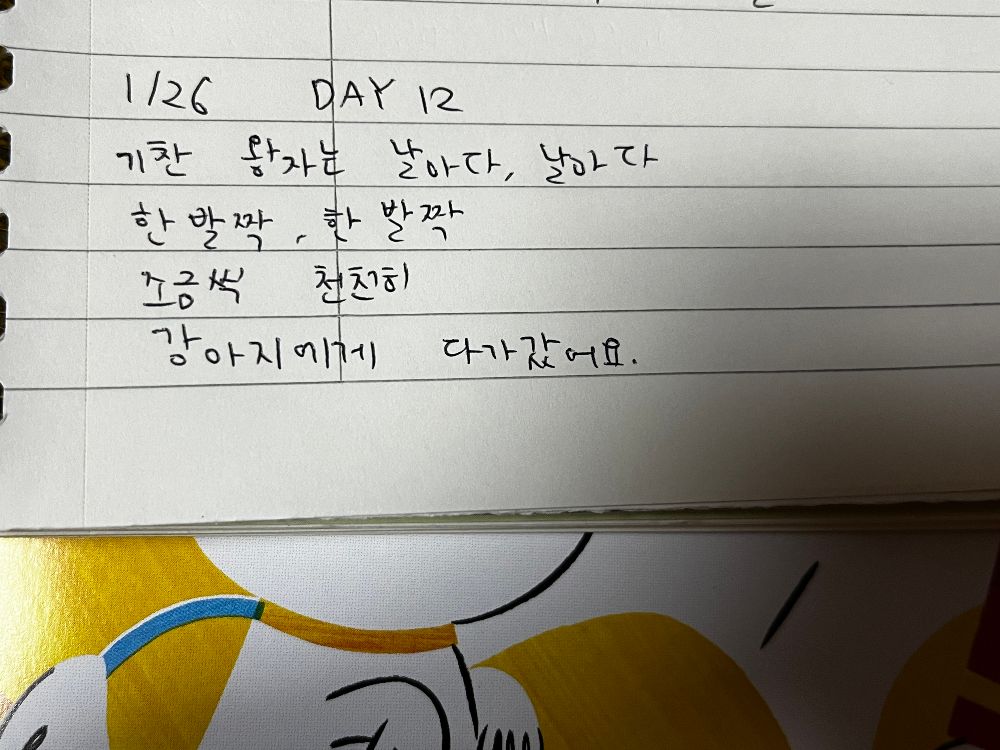 1/26 DAY 12
기찬 왕자는 날아다, 날아다
한 발짝, 한 발짝
조금씩 천천히
강아지에게 다가갔어요.